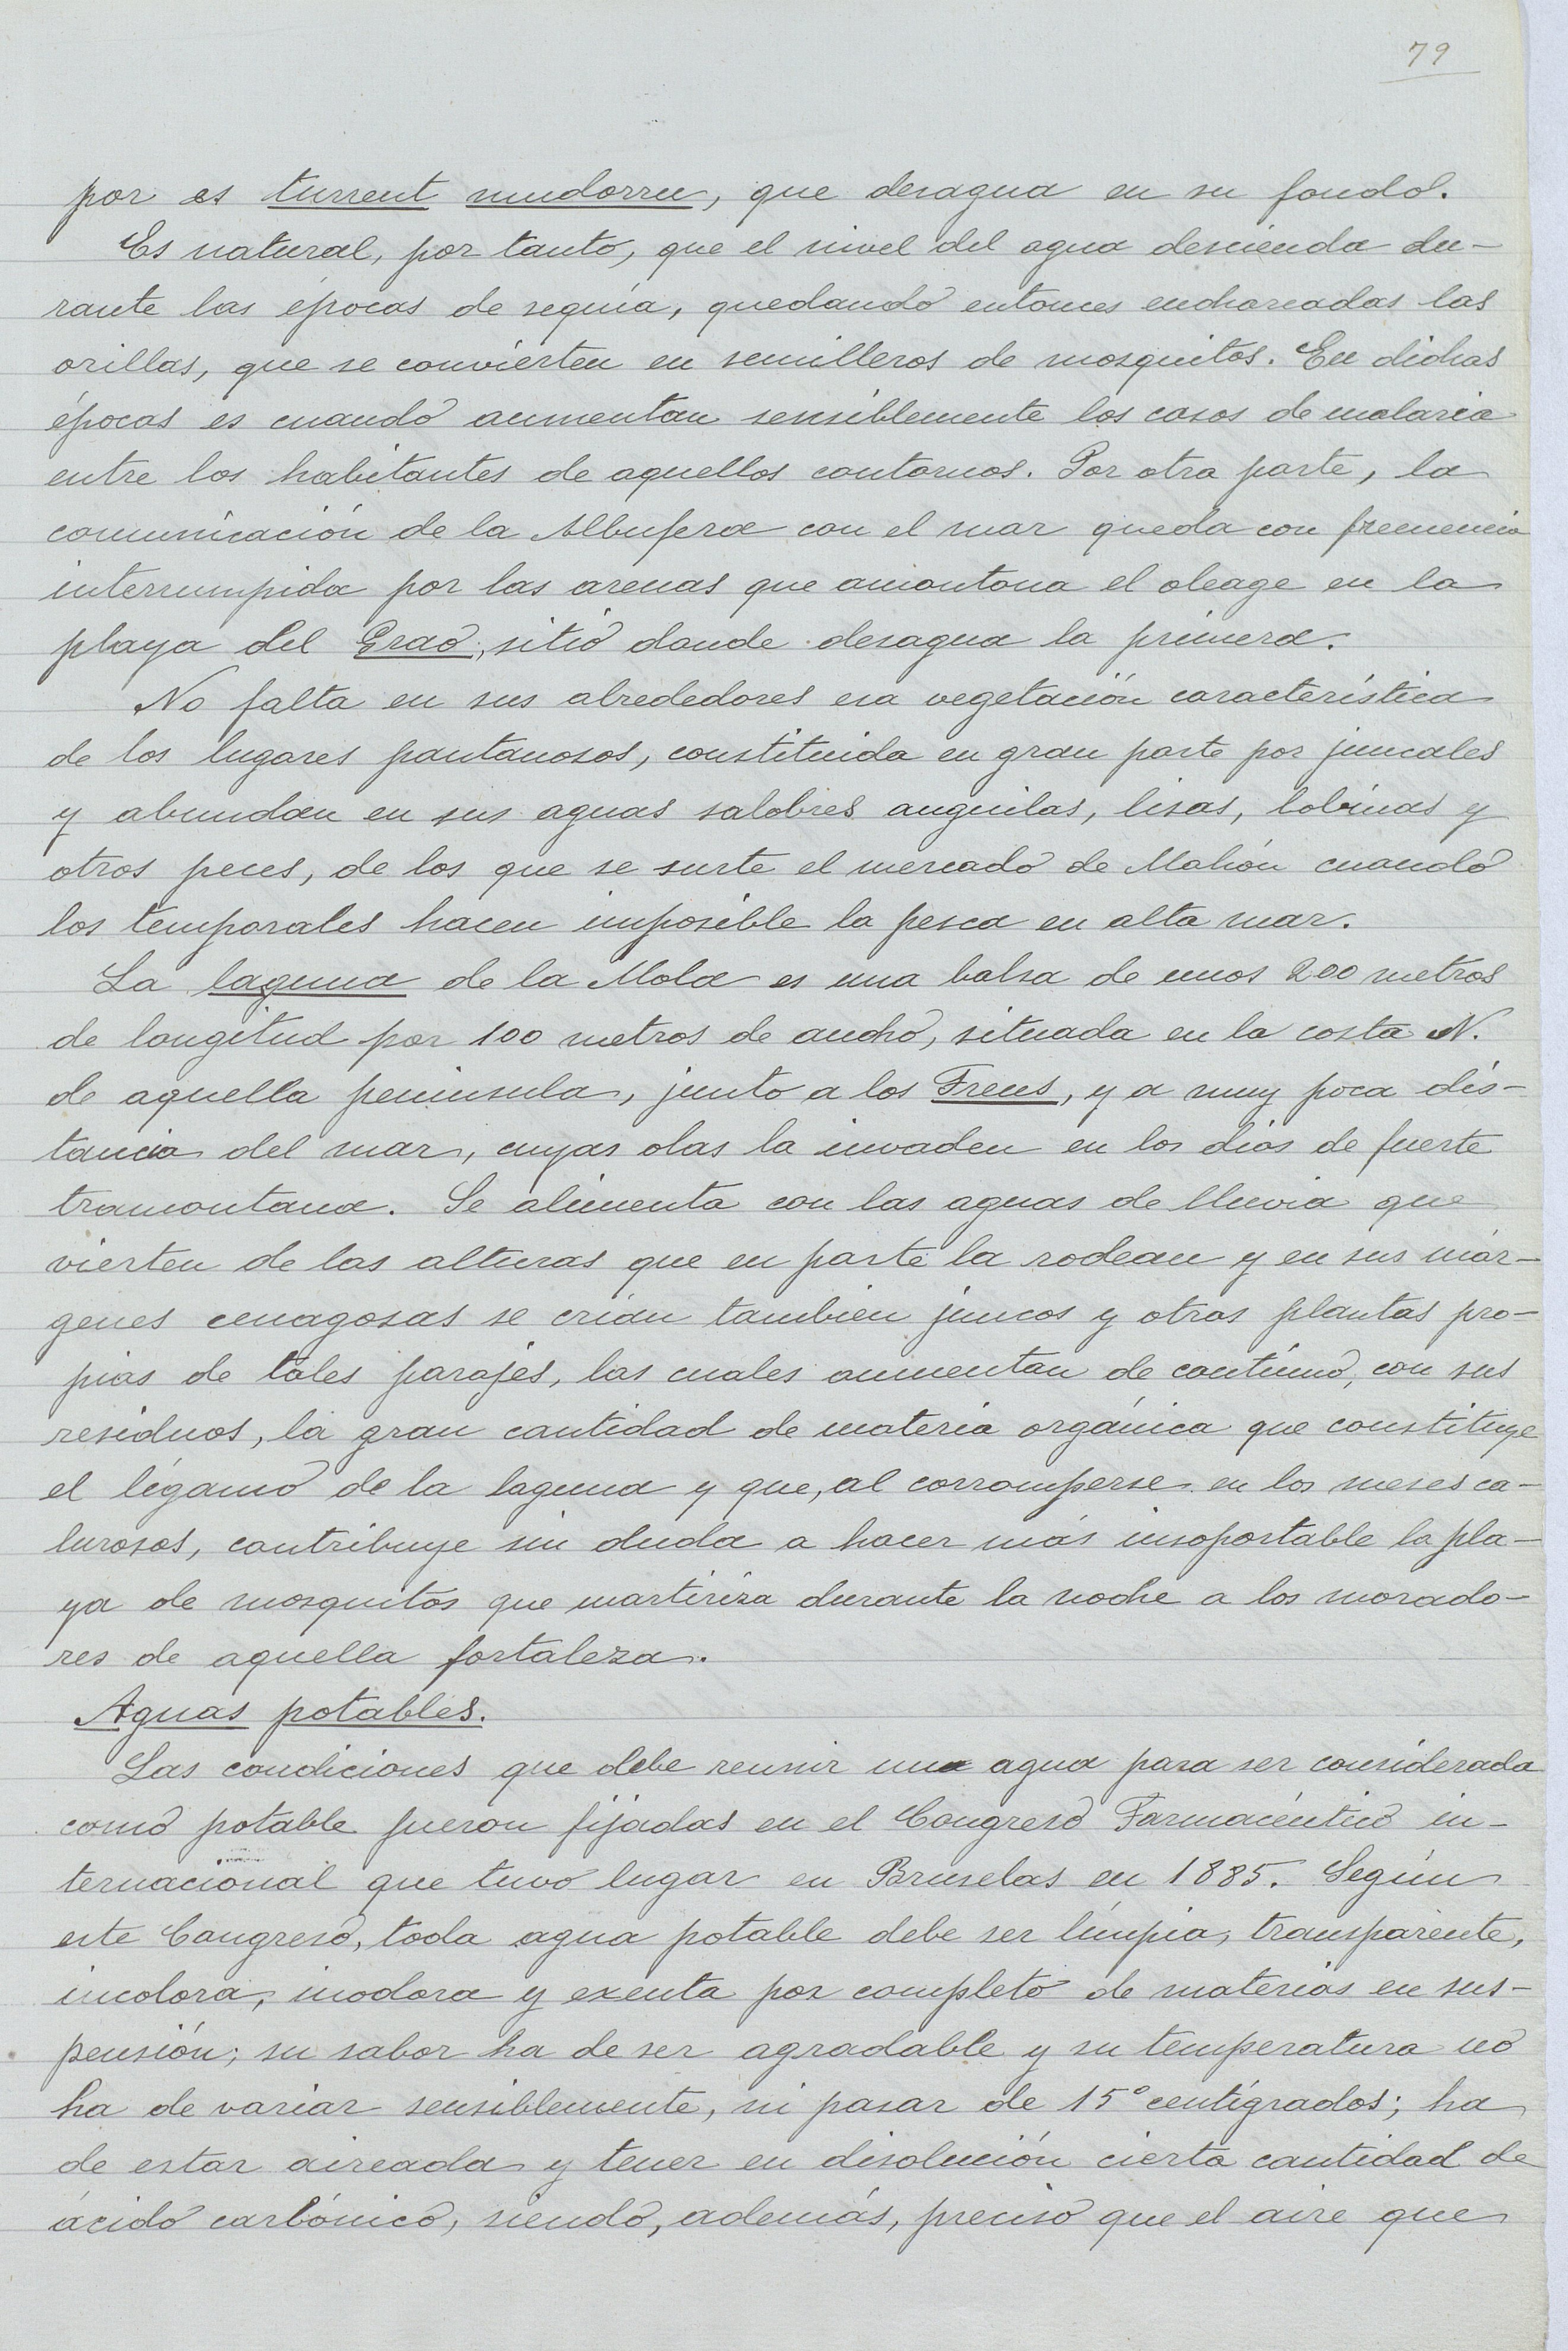 79
por es turrent mudorru, que desagua en su fondo.
Es natural, por tanto, que el nivel del agua descienda du-
rante las épocas de sequía, quedando entonces encharcadas las
orillas, que se convierten en semilleros de mosquitos. En dichas
épocas es cuando aumentan sensiblemente los casos de malaria
entre los habitantes de aquellos contornos. Por otra parte, la
comunicación de la Albufera con el mar queda con frecuencia
interrumpida por las arenas que amontona el oleage en la
playa del Grao, sitio donde desagua la primera.
No falta en sus alrededores esa vegetación característica
de los lugares pantanosos, constituida en gran parte por juncales
y abundan en sus aguas salobres anguilas, lisas, lobinas y
otros peces, de los que se surte el mercado de Mahón cuando
los temporales hacen imposible la pesca en alta mar.
La laguna de la Mola es una balsa de unos 200 metros
de longitud por 100 metros de ancho, situada en la costa N.
de aquella península, junto a los Freus, y a muy poca dis-
tancia del mar, cuyas olas la invaden en los días de fuerte
tramontana. Se alimenta con las aguas de lluvia que
vierten de las alturas que en parte la rodean y en sus már-
genes cenagosas se crían también juncos y otras plantas pro-
pias de tales parajes, las cuales aumentan de contínuo, con sus
residuos, la gran cantidad de materia orgánica que constituye
el légamo de la laguna y que, al corromperse en los meses ca-
lurosos, contribuye sin duda a hacer más insoportable la pla-
ya de mosquitos que martiriza durante la noche a los morado-
res de aquella fortaleza.
Aguas potables.
Las condiciones que debe reunir una agua para ser considerada
como potable fueron fijadas en el Congreso Farmacéutico in-
ternacional que tuvo lugar en Bruselas en 1885. Según
este Congreso, toda agua potable debe ser límpia, transparente,
incolora, inodora y exenta por completo de materias en sus-
pensión; su sabor ha de ser agradable y su temperatura no
ha de variar sensiblemente, ni pasar de 15º centígrados; ha
de estar aireada y tener en disolución cierta cantidad de
ácido carbónico, siendo, además, preciso que el aire que